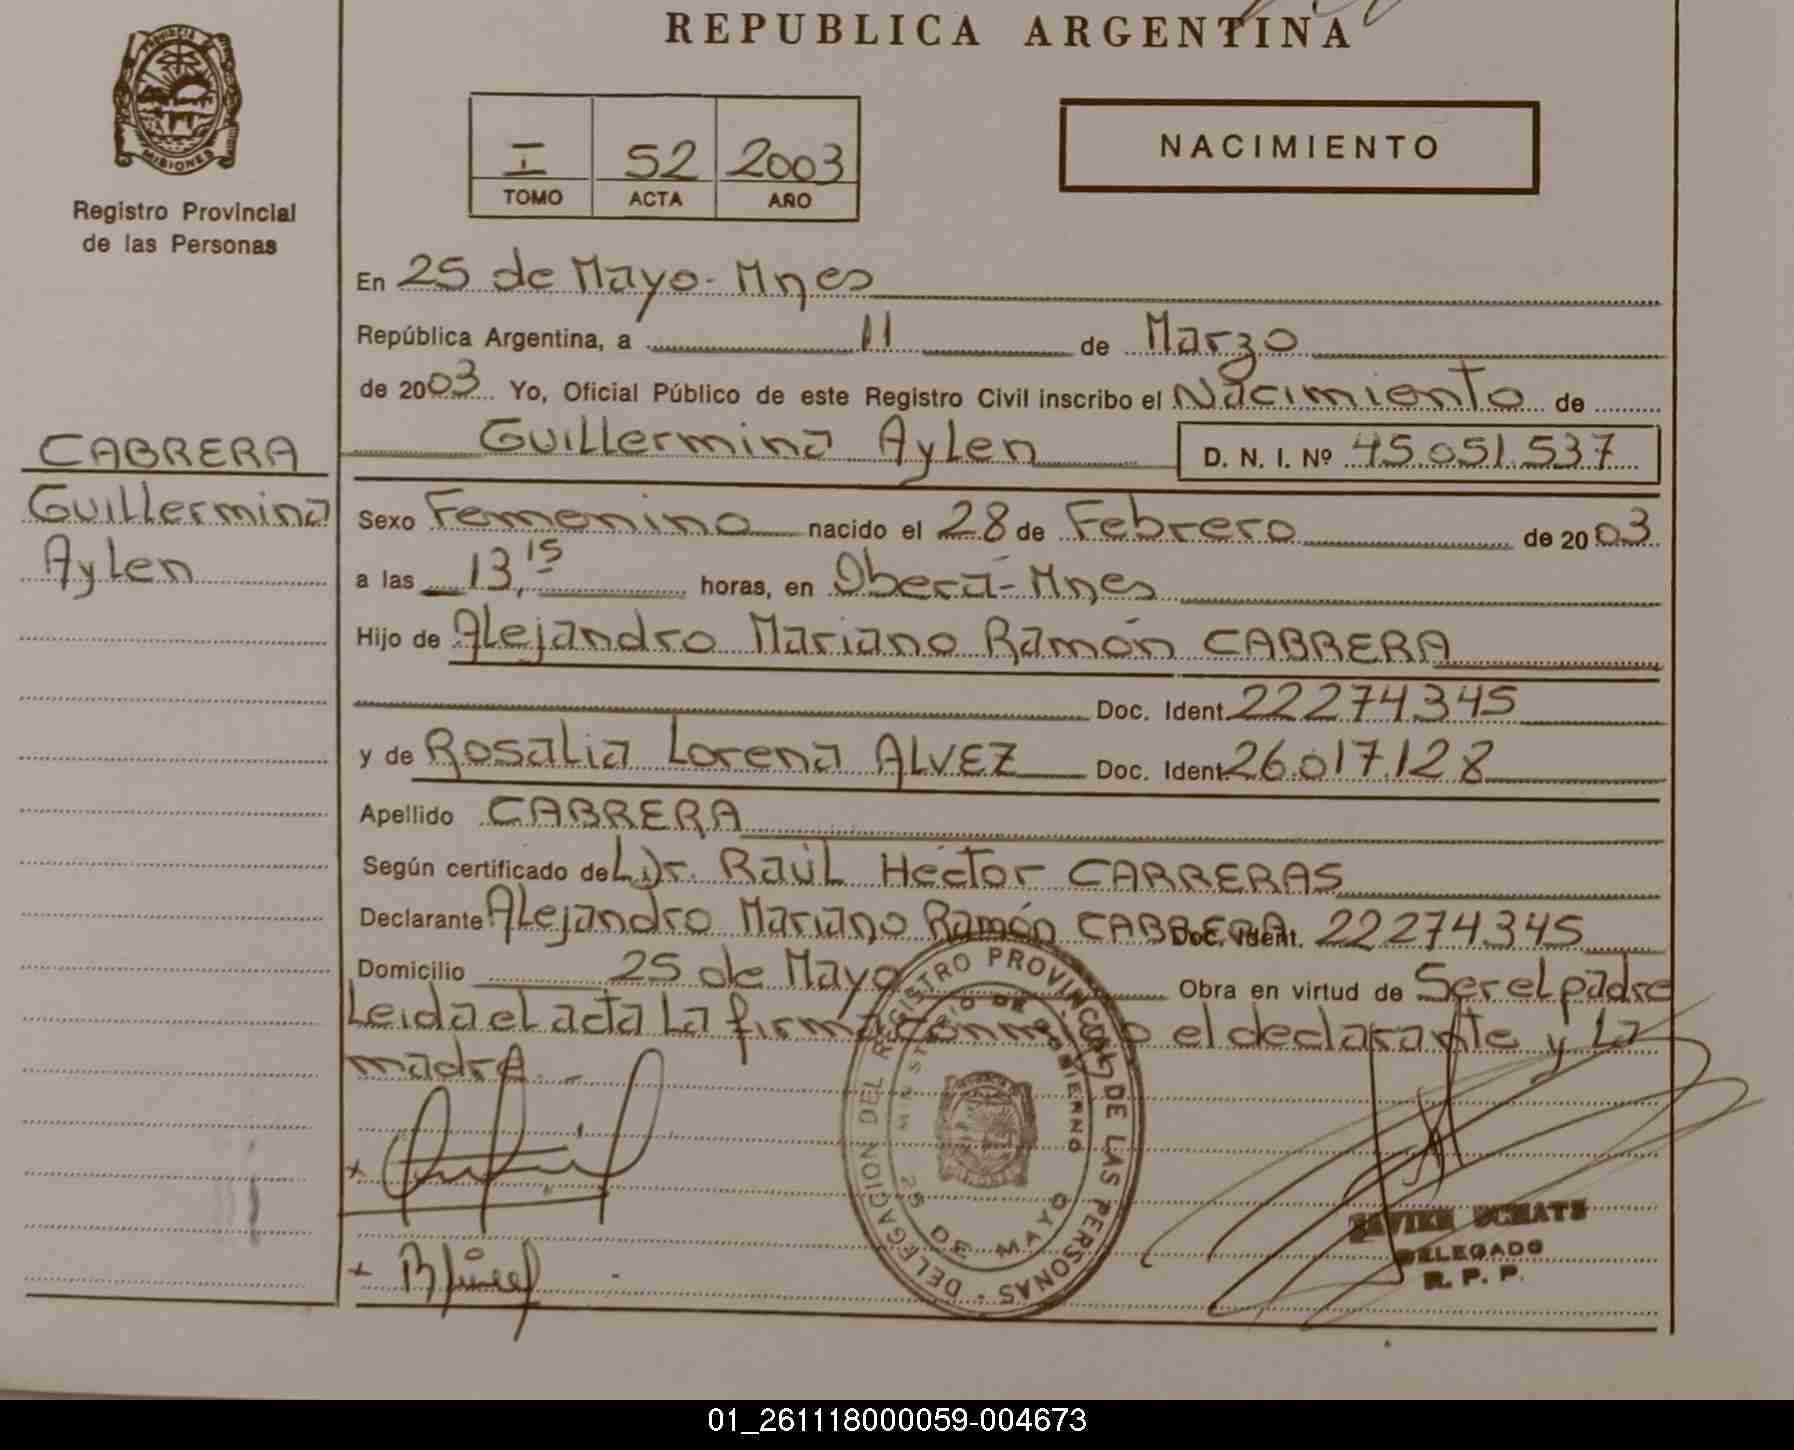 REPUBLICA ARGENTINA
PROVINCIA DE
MISIONES
Registro Provincial
de las Personas
I 52 2003
TOMO ACTA AÑO
NACIMIENTO
En 25 de Mayo-Mnes
República Argentina, a 11 de Marzo
de 2003 Yo, Oficial Público de este Registro Civil inscribo el Nacimiento de
Guillermina Aylen D. N. I. Nº 45.051.537
CABRERA
Guillermina
Aylen
Sexo Femenino nacido el 28 de Febrero de 2003
a las 13,15 horas, en Oberá-Mnes
Hijo de Alejandro Mariano Ramón CABRERA
Doc. Ident. 22274345
y de Rosalia Lorena ALVEZ Doc. Ident. 26.017.128
Apellido CABRERA
Según certificado de L Dr. Raúl Héctor CARRERAS
Declarante Alejandro Mariano Ramón CABRERA Doc. Ident. 22274345
Domicilio 25 de Mayo Obra en virtud de Ser el padre
Leida el acta La firma conmigo el declarante y La
madre.-
DELEGACION DEL REGISTRO PROVINCIAL DE LAS PERSONAS
MINISTERIO DE GOBIERNO
25 DE MAYO
DELEGADO
R. P. P.
01_261118000059-004673